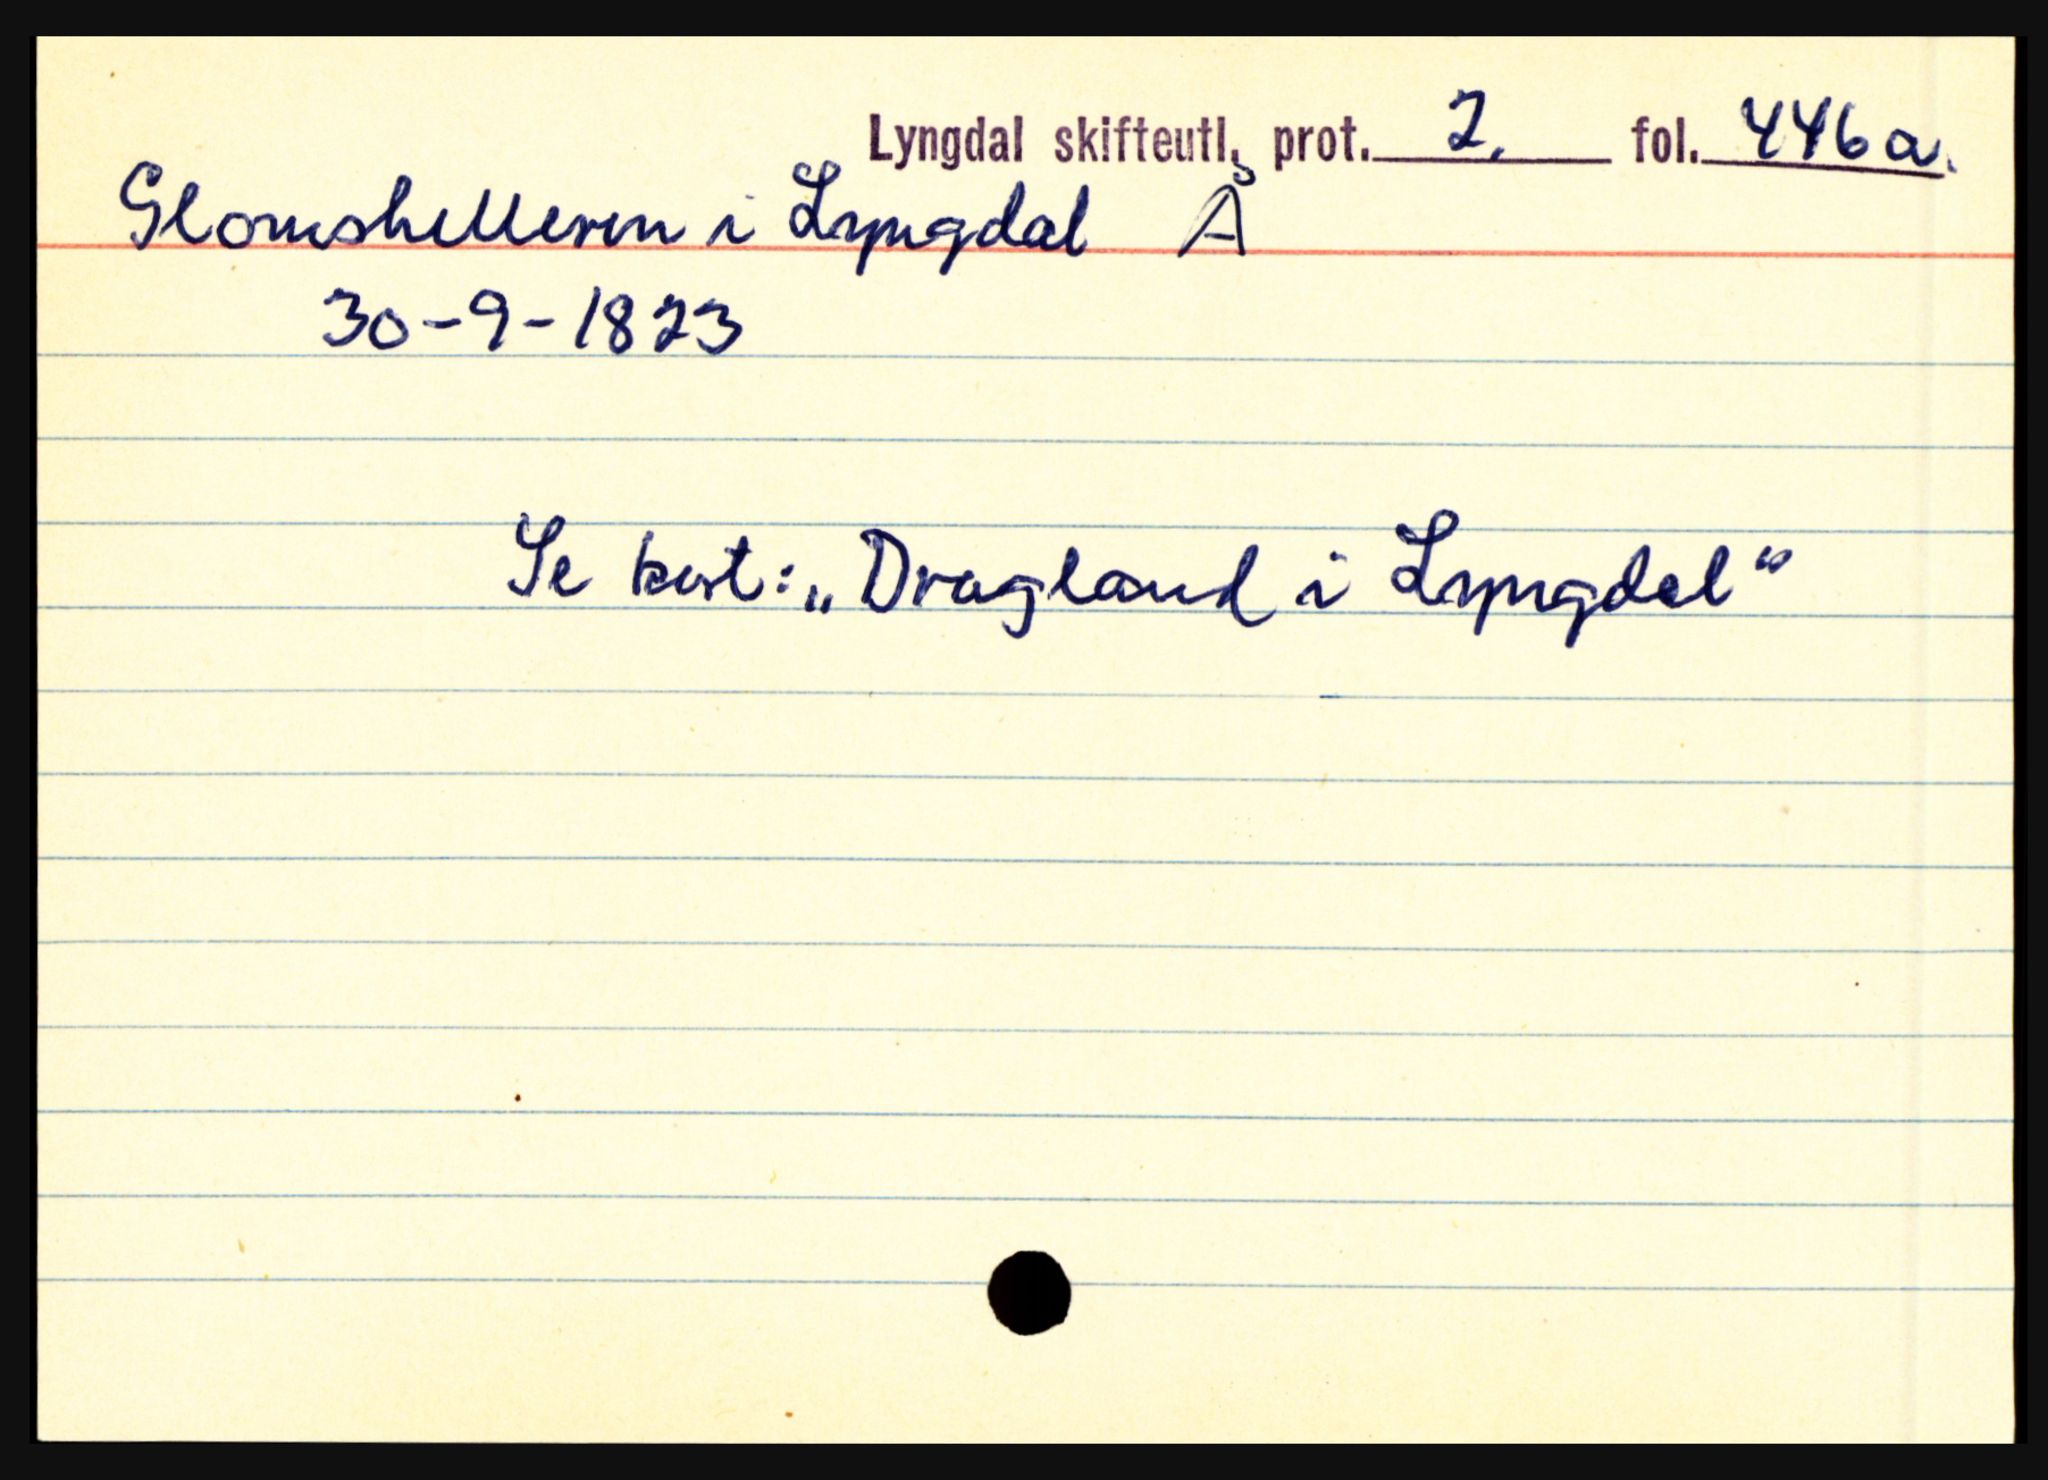 Lyngdal skifteutl. prot. 2. fol. 446a.
Glomshelleren i Lyngdal Å
30-9-1823
Se kort: „Dragland i Lyngdal“